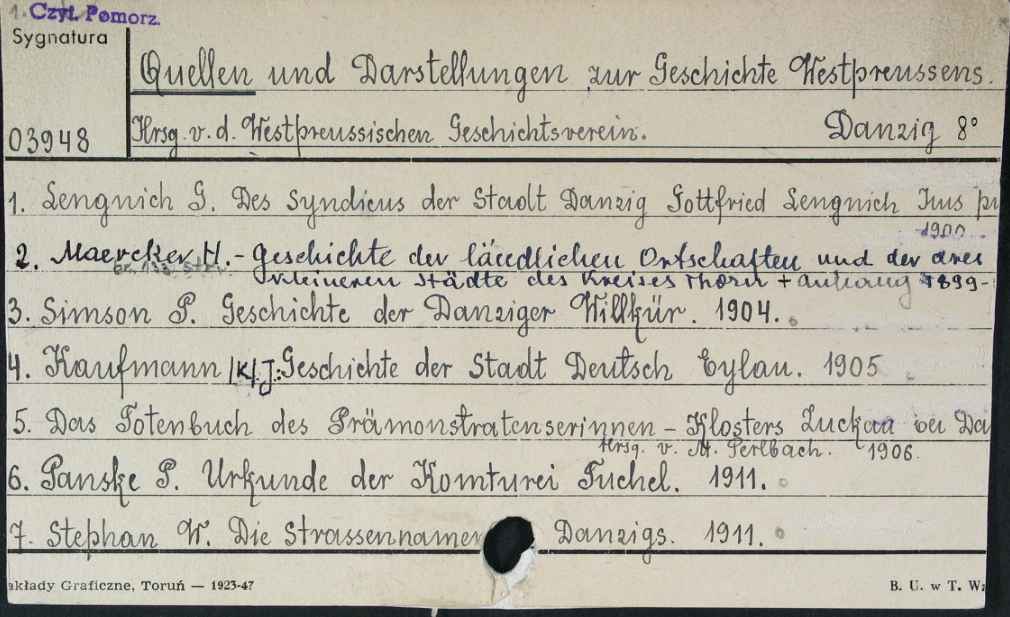 1. Czyt. Pomorz.
Sygnatura
Quellen und Darstellungen zur Geschichte Westpreussens.
03948
Hrsg. v. d. Westpreussischen Geschichtsverein. Danzig 8°
1. Lengnich G. Des Syndicus der Stadt Danzig Gottfried Lengnich Jus pu
1900
2. Maercker H. - Geschichte der ländlichen Ortschaften und der drei
kleineren Städte des Kreises Thorn + Anhang 1899-
3. Simson P. Geschichte der Danziger Willkür. 1904.
4. Kaufmann /K/ J.: Geschichte der Stadt Deutsch Eylau. 1905
5. Das Totenbuch des Prämonstratenserinnen - Klosters Zuckau bei Da
Hrsg. v. M. Perlbach. 1906.
6. Panske P. Urkunde der Komturei Tuchel. 1911.
7. Stephan W. Die Strassennamen Danzigs. 1911.
akłady Graficzne, Toruń — 1923-47
B. U. w T. Wz